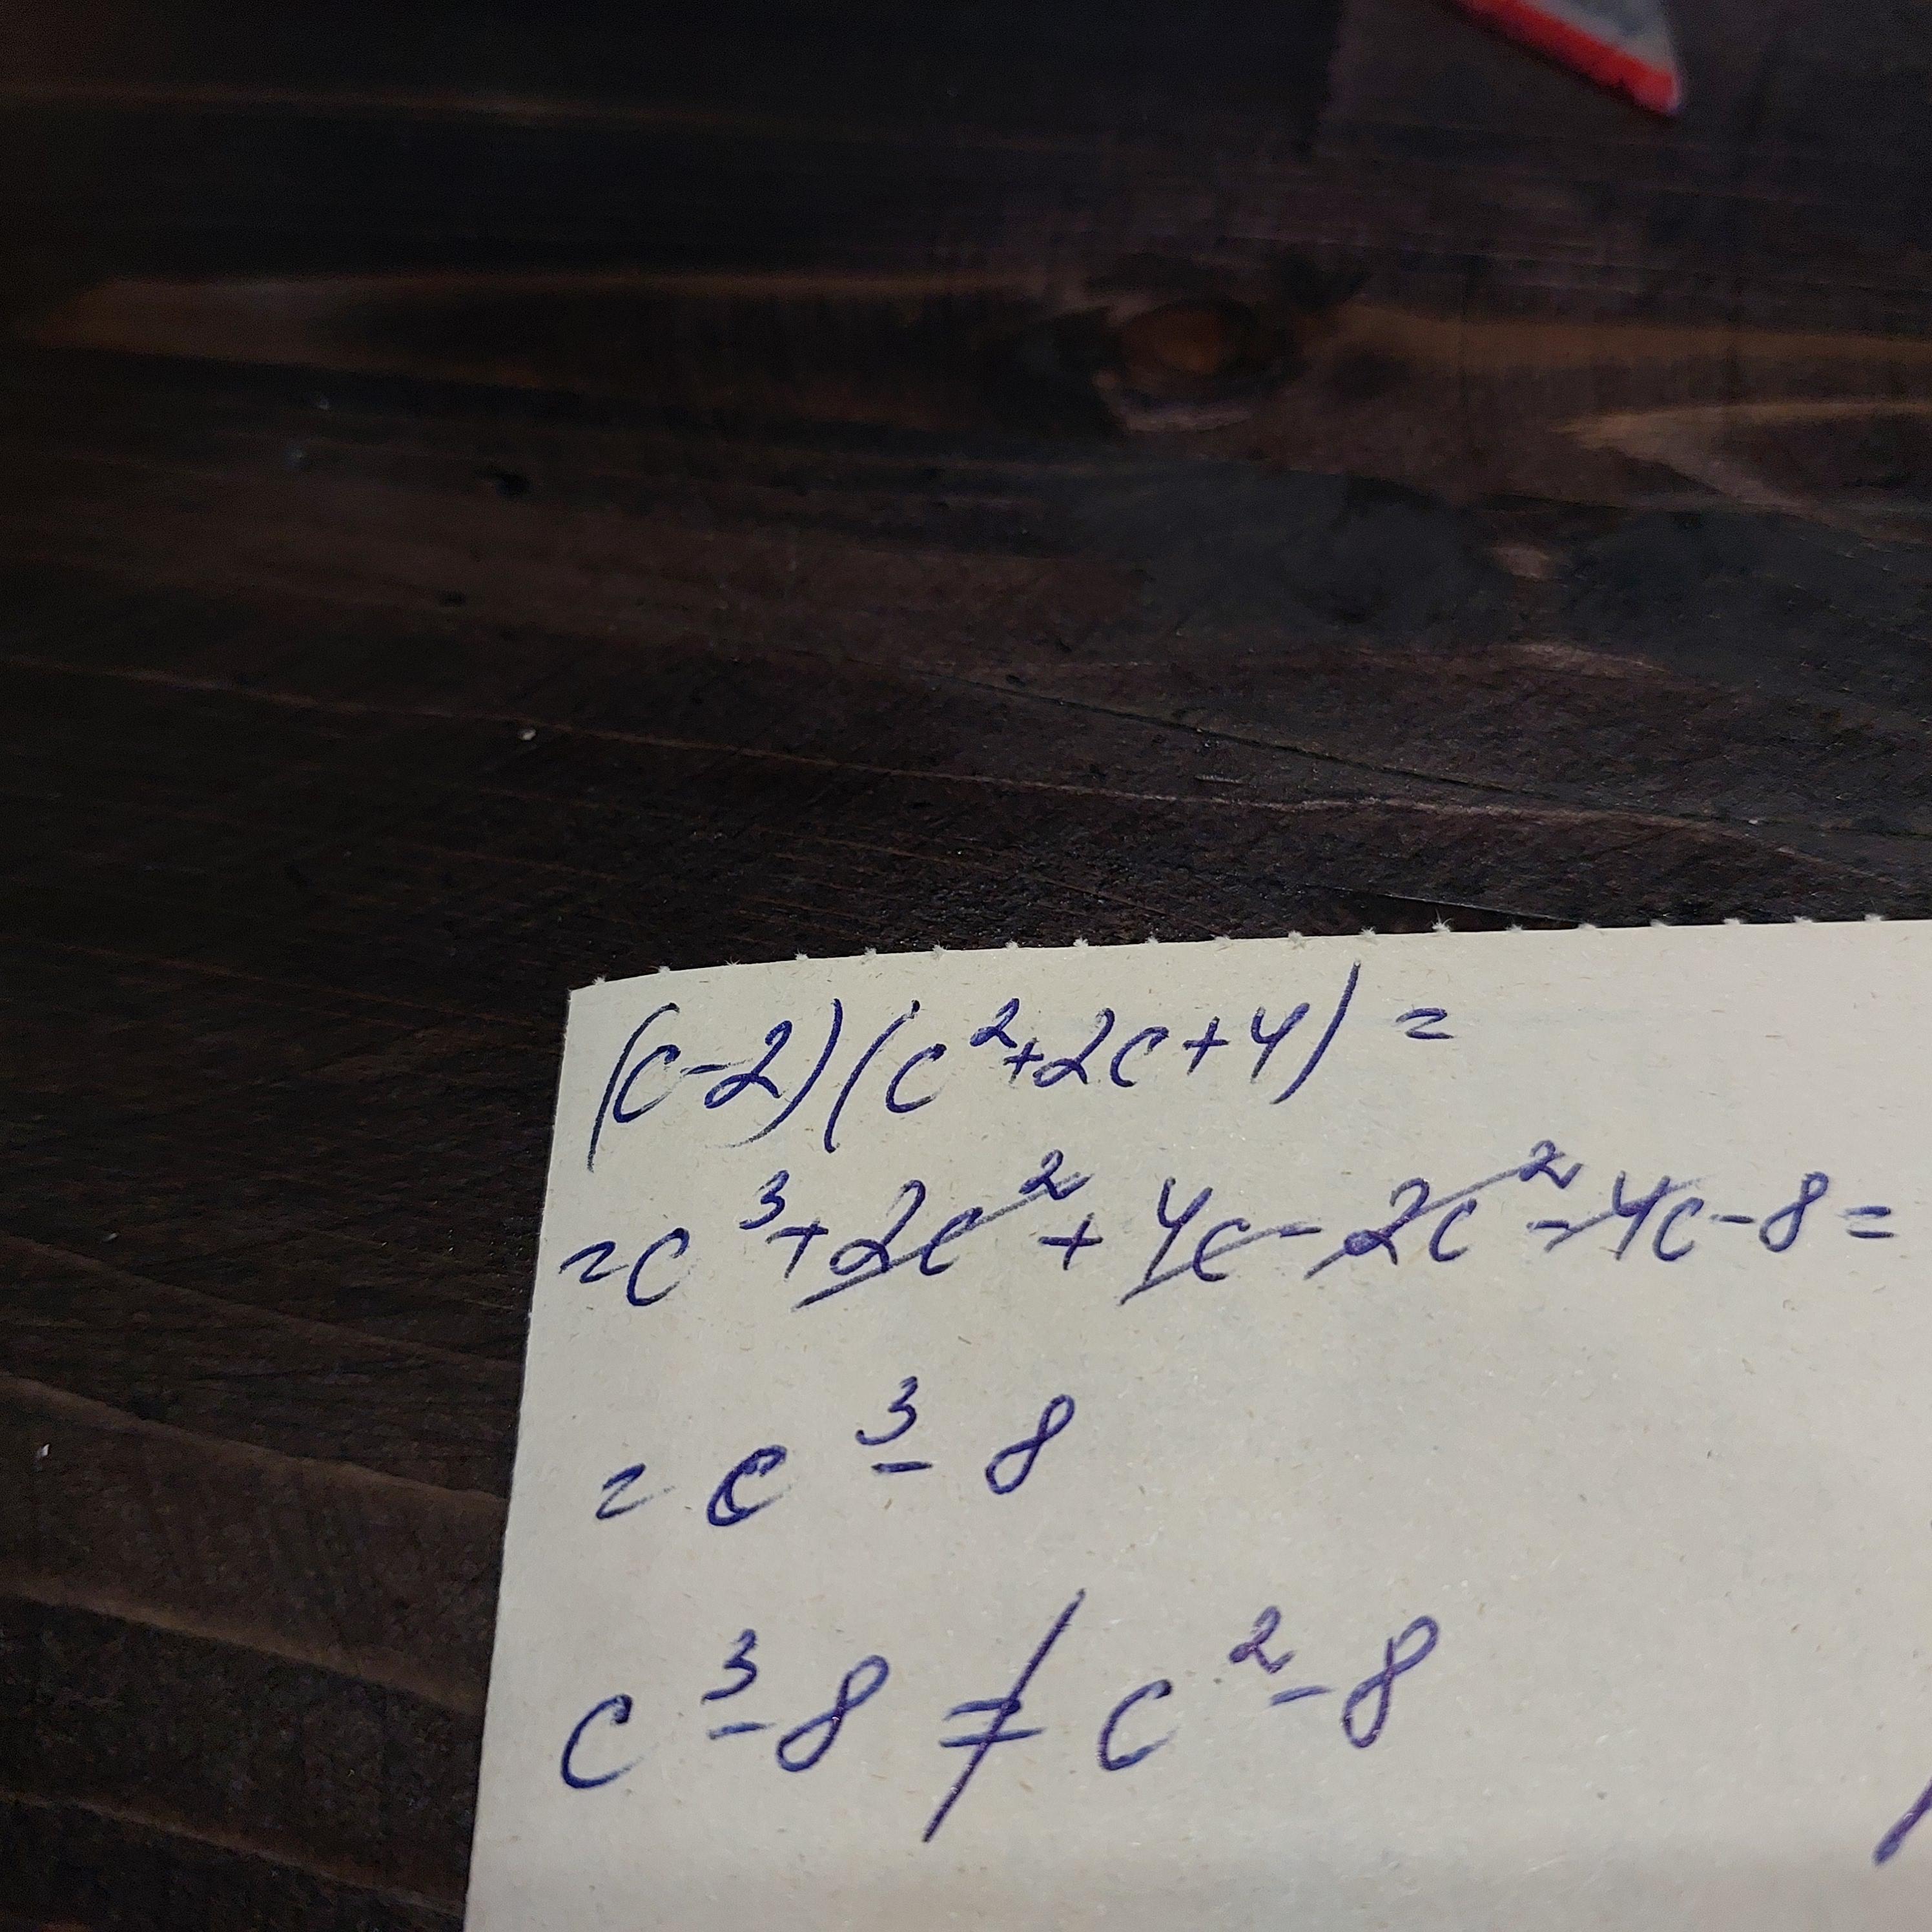 (c-2)(c²+2c+4)=
=c³+2c²+4c-2c²-4c-8=
=c³-8
c³-8≠c²-8